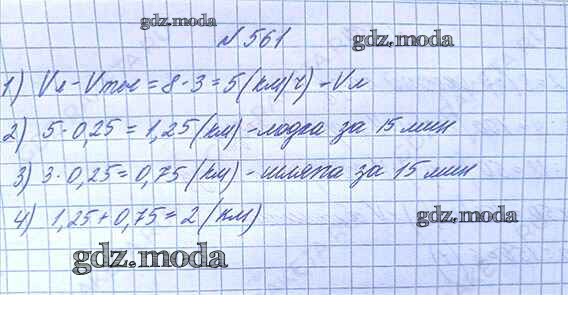 gdz.moda
№561
gdz.moda
1) Vл - Vтеч = 8 - 3 = 5 (км/ч) - Vл
2) 5 · 0,25 = 1,25 (км) - лодка за 15 мин
3) 3 · 0,25 = 0,75 (км) - шляпа за 15 мин
4) 1,25 + 0,75 = 2 (км)
gdz.moda
gdz.moda